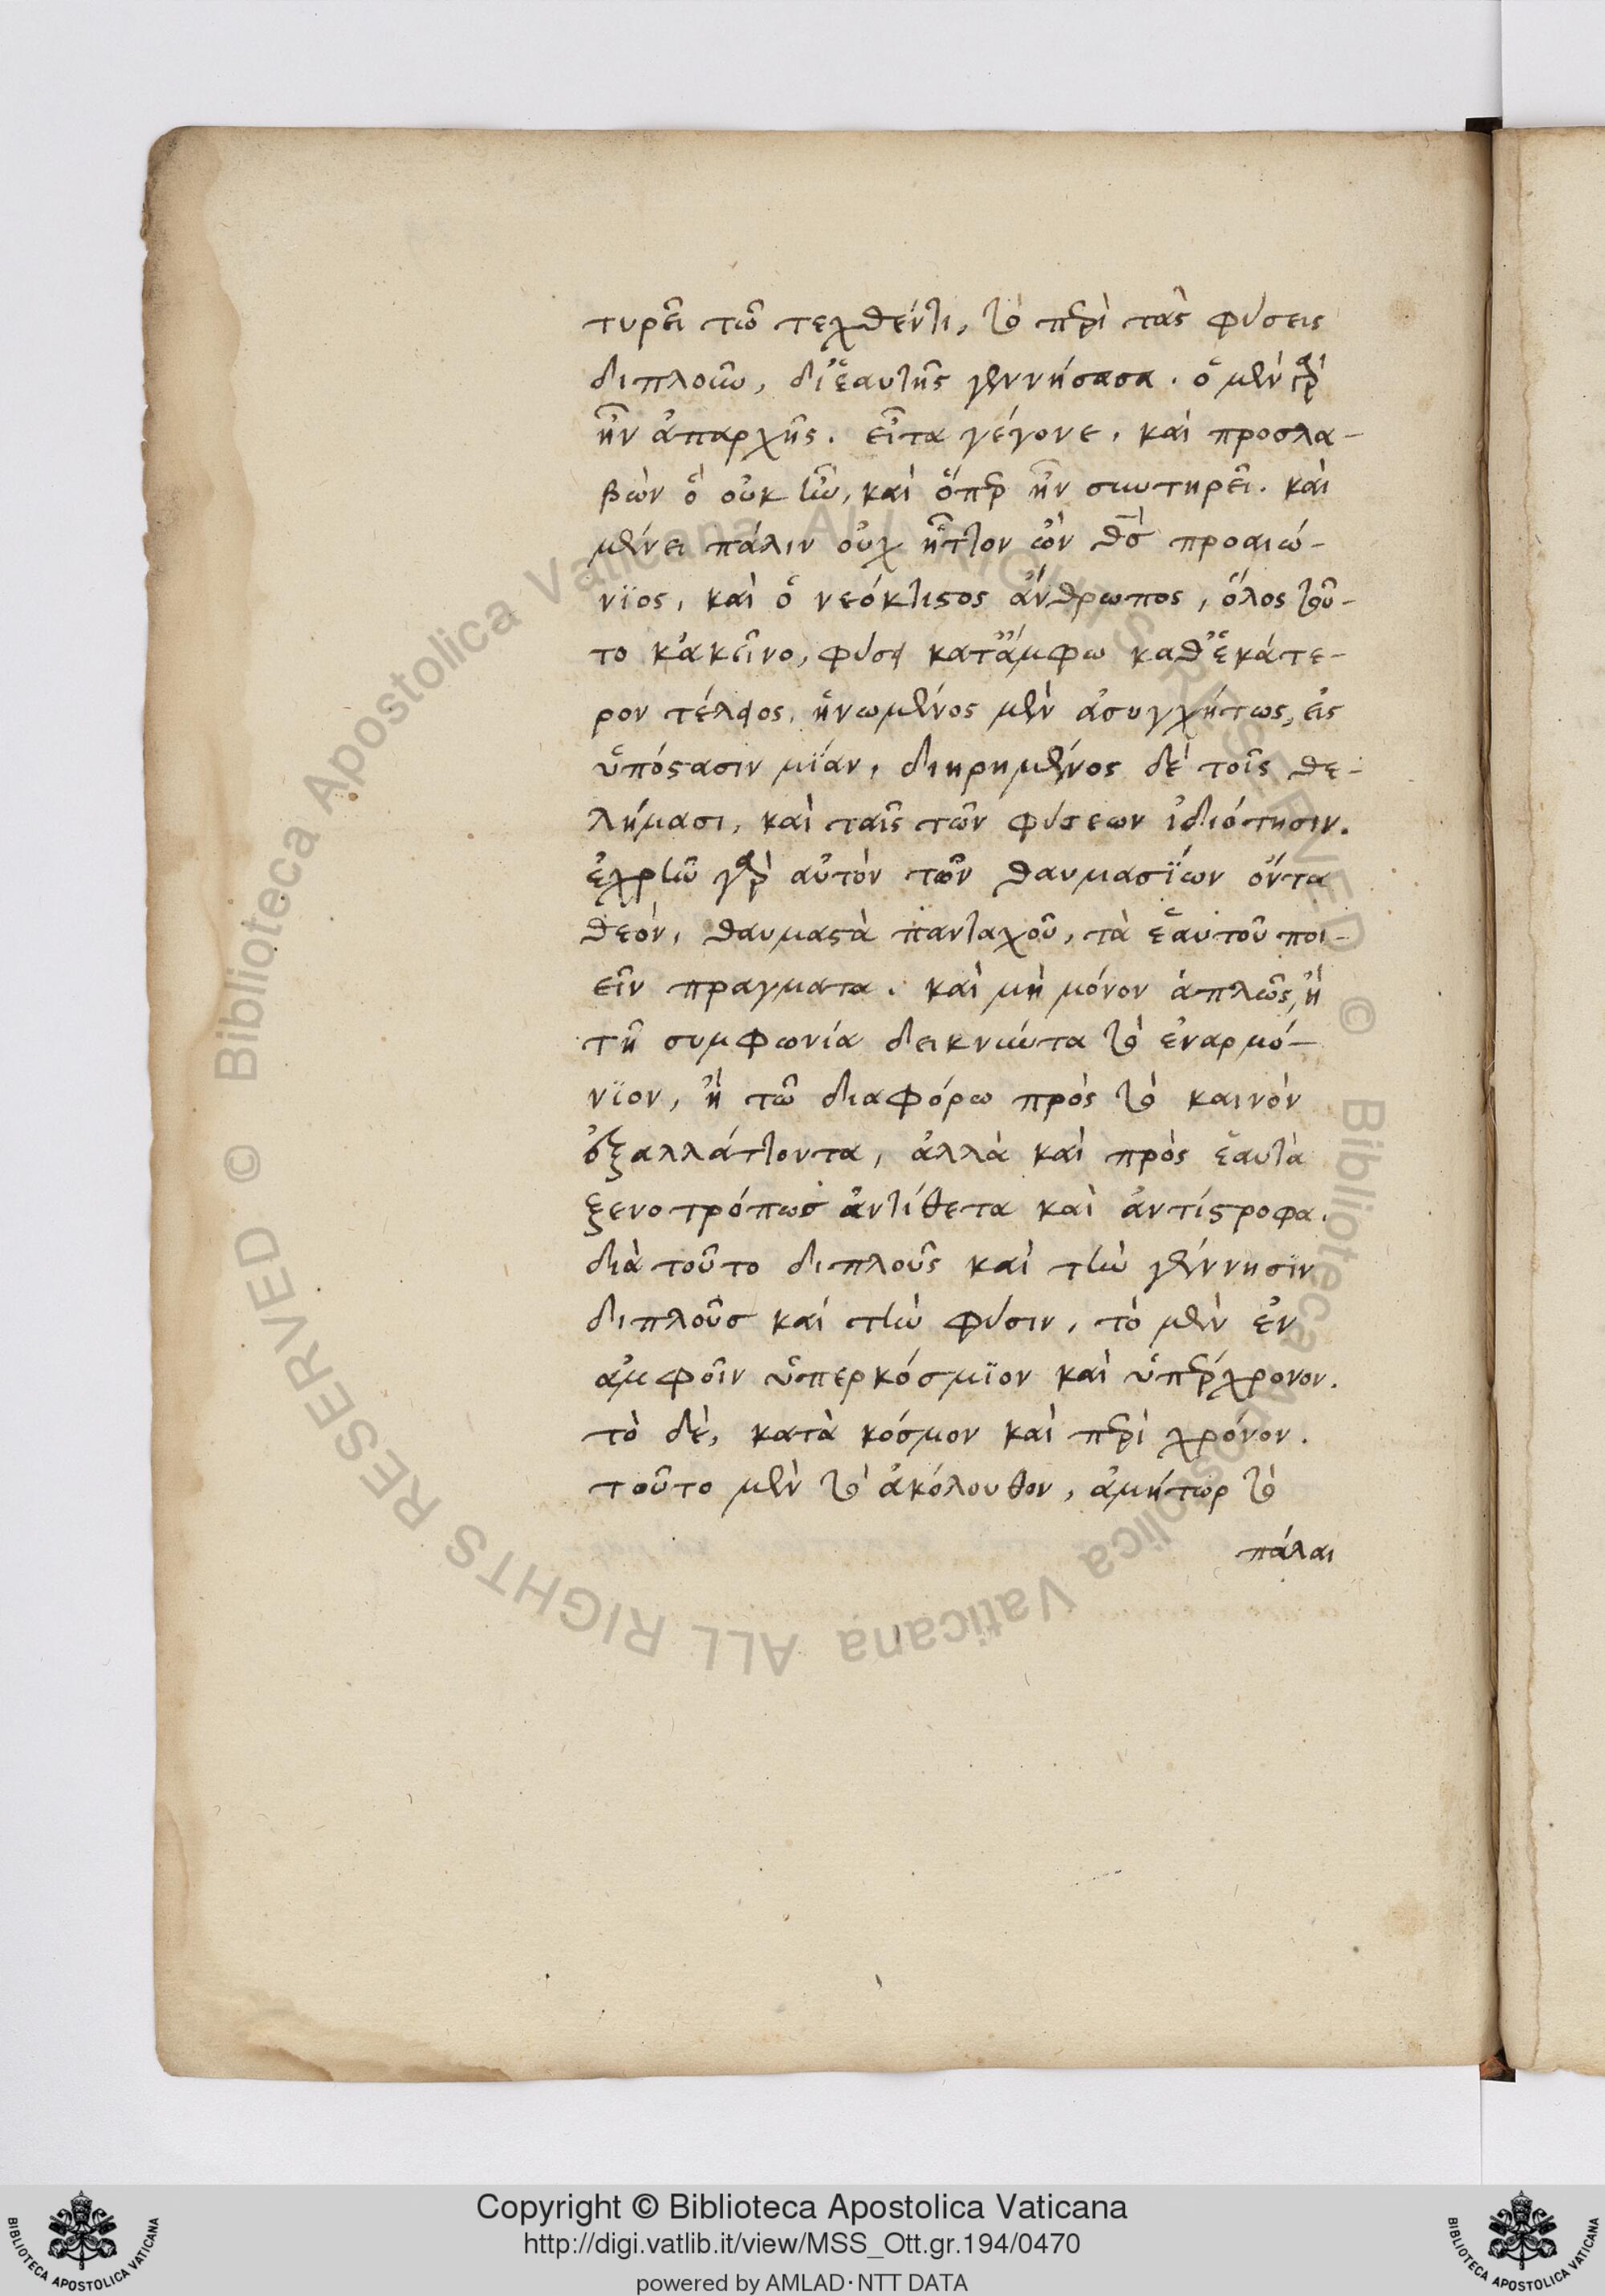 τυρεῖ τῶ τεχθέντι, τὸ περὶ τὰς φύσεις
διπλοῦν, δι' ἑαυτῆς γεννήσασα. ὃ μὲν γὰρ
ἦν ἀπαρχῆς. εἶτα γέγονε, καὶ προσλα-
βὼν ὃ οὐκ ἦν, καὶ ὅπερ ἦν συντηρεῖ. καὶ
μένει πάλιν οὐχ ἧττον ὢν θς προαιώ-
νϊος, καὶ ὁ νεόκτιστος ἄνθρωπος, ὅλος τοῦ-
το κἀκεῖνο, φύσει κατ' ἄμφω καθ' ἑκάτε-
ρον τέλειος, ἡνωμένος μὲν ἀσυγχύτως, εἰς
ὑπόστασιν μϊάν, διηρημένος δὲ τοῖς θε-
λήμασι, καὶ ταῖς τῶν φύσεων ἰδιότησιν.
ἐχρῆν γὰρ αὐτὸν τῶν θαυμασϊων ὄντα
θεὸν, θαυμαστὰ πανταχοῦ, τὰ ἑαυτοῦ ποι-
εῖν πραγματα. καὶ μὴ μόνον ἁπλῶς, ἢ
τῆ συμφωνία δεικνύντα τὸ ἐναρμό-
νϊον, ἢ τῶ διαφόρω πρὸς τὸ καινὸν
ἐξαλλάττοντα, ἀλλὰ καὶ πρὸς ἑαυτὰ
ξενοτρόπως ἀντίθετα καὶ ἀντίστροφα.
διὰ τοῦτο διπλοῦς καὶ τὴν γέννησϊν
διπλοῦς καὶ τὴν φύσιν, τὸ μὲν ἐν
ἀμφοῖν ὑπερκόσμϊον καὶ ὑπέρχρονον.
τὸ δὲ, κατὰ κόσμον καὶ περὶ χρόνον.
τοῦτο μὲν τὸ ἀκόλουθον, ἀμήτωρ τὸ
πάλαι
© Biblioteca Apostolica Vaticana ALL RIGHTS RESERVED © Biblioteca Apostolica Vaticana ALL RIGHTS RESERVED
Copyright © Biblioteca Apostolica Vaticana
http://digi.vatlib.it/view/MSS_Ott.gr.194/0470
powered by AMLAD·NTT DATA
BIBLIOTECA APOSTOLICA VATICANA
BIBLIOTECA APOSTOLICA VATICANA